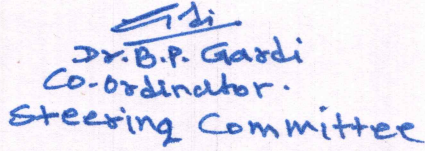 Dr. B.P. Gardi
Co-ordinator.
Steering Committee